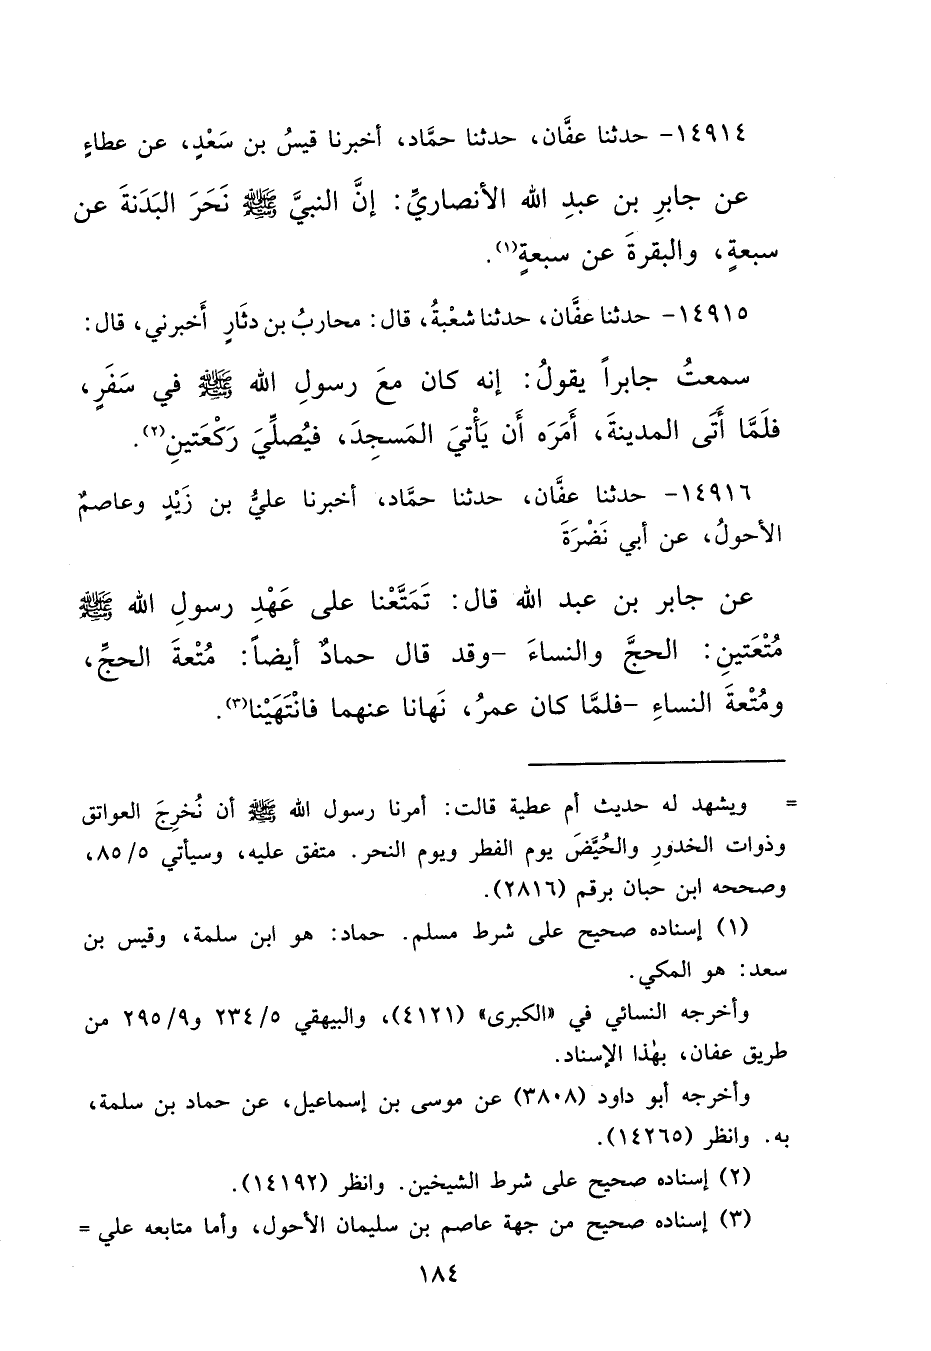 ١٤٩١٤- حدثنا عفَّان، حدثنا حمَّاد، أخبرنا قيسُ بن سَعْدٍ، عن عطاءٍ
عن جابرِ بن عبدِ الله الأنصاريِّ: إنَّ النبيَّ ﷺ نَحَرَ البَدَنةَ عن
سبعةٍ، والبقرةَ عن سبعةٍ(١).
١٤٩١٥- حدثنا عفَّان، حدثنا شعْبةُ، قال: محاربُ بن دثَارٍ أَخبرني، قال:
سمعتُ جابراً يقولُ: إنه كان معَ رسولِ الله ﷺ في سَفَرٍ،
فلَمَّا أَتَى المدينةَ، أمَرَه أَن يَأْتيَ المَسجِدَ، فيُصلِّيَ رَكْعَتينِ(٢).
١٤٩١٦- حدثنا عفَّان، حدثنا حمَّاد، أخبرنا عليُّ بن زَيْدٍ وعاصمٌ
الأحولُ، عن أبي نَضْرَةَ
عن جابر بن عبد الله قال: تَمَتَّعْنا على عَهْدِ رسولِ الله ﷺ
مُتْعَتينِ: الحجَّ والنساءَ -وقد قال حمادٌ أيضاً: مُتْعةَ الحجِّ،
ومُتْعةَ النساءِ -فلمَّا كان عمرُ، نَهانا عنهما فانْتَهَيْنا(٣).
= ويشهد له حديث أم عطية قالت: أمرنا رسول الله ﷺ أن نُخرِجَ العواتق
وذوات الخدورِ والحُيَّضَ يوم الفطر ويوم النحر. متفق عليه، وسيأتي ٨٥/٥،
وصححه ابن حبان برقم (٢٨١٦).
(١) إسناده صحيح على شرط مسلم. حماد: هو ابن سلمة، وقيس بن
سعد: هو المكي.
وأخرجه النسائي في «الكبرى» (٤١٢١)، والبيهقي ٢٣٤/٥ و٢٩٥/٩ من
طريق عفان، بهٰذا الإسناد.
وأخرجه أبو داود (٣٨٠٨) عن موسى بن إسماعيل، عن حماد بن سلمة،
به. وانظر (١٤٢٦٥).
(٢) إسناده صحيح على شرط الشيخين. وانظر (١٤١٩٢).
(٣) إسناده صحيح من جهة عاصم بن سليمان الأحول، وأما متابعه علي =
١٨٤